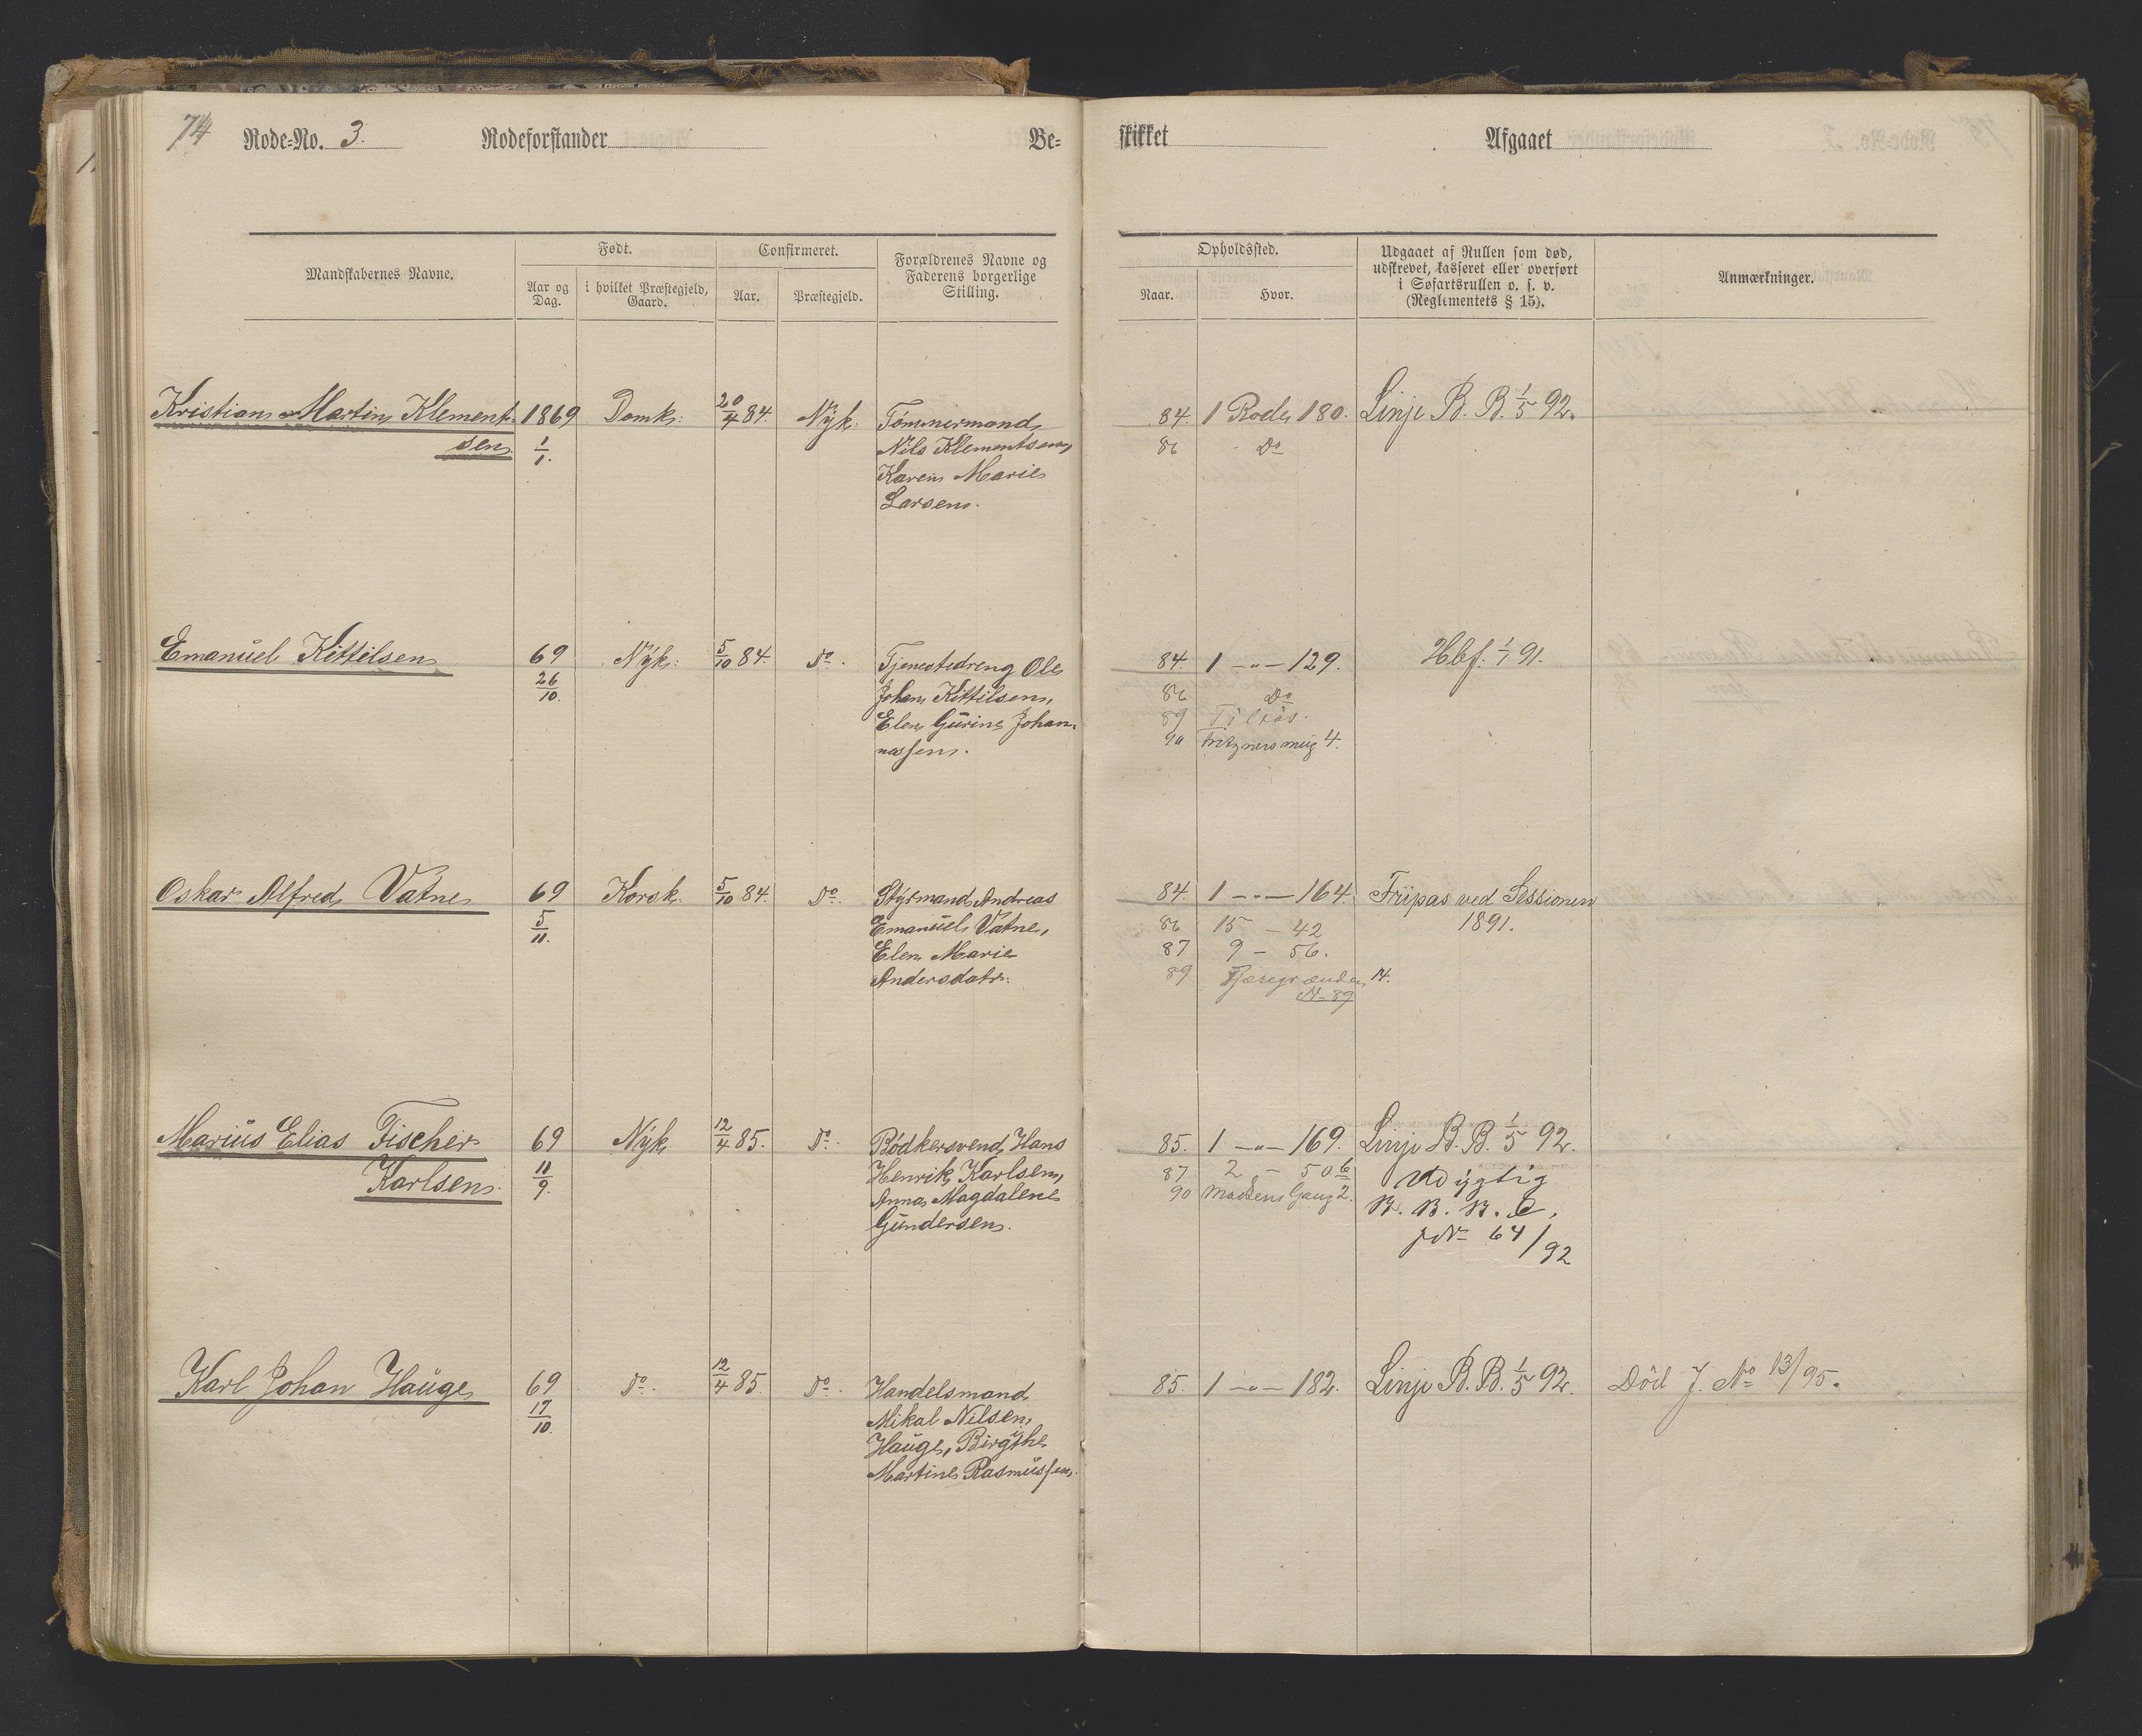 74 Rode-No. 3. Rodeforstander Be- skikket Afgaaet
Mandskabernes Navne. Født. Confirmeret. Forældrenes Navne og Faderens borgerlige Stilling. Opholdssted. Udgaaet af Rullen som død, udskrevet, kasseret eller overført i Søfartsrullen o. s. v. (Reglementets § 15). Anmærkninger.
Aar og Dag. i hvilket Præstegjeld, Gaard. Aar. Præstegjeld. Naar. Hvor.
Kristian Martin Klement- 1869 Domk: 20/4 84. Nyk: Tømmermand 84. 1 Rode 180. Linje B. B. 1/5 92.
sen 1/1. Nils Klementsen, 86 Do
Karen Marie
Larsen.
Emanuel Kittilsen 69 Nyk: 5/10 84. Do. Tjenestedreng Ole 84. 1 -"- 129. Hbf. 1/1 91.
26/10. Johan Kittilsen, 86 Do
Elen Gurine Johan- 89 Tilsös.
nessen. 90 4.
Oskar Alfred Vatne 69 Korsk. 5/10 84. Do. Styrmand Andreas 84. 1 -"- 164. Fripas ved Sessionen
5/11. Emanuel Vatne, 86 15 - 42 1891.
Elen Marie 87 9 - 56.
Andersdatr: 89 14.
N - 89
Marius Elias Fischer 69 Nyk 12/4 85. Do. Bødkersvend Hans 85. 1 -"- 169. Linje B. B. 1/5 92.
Karlsen. 11/9. Henrik Karlsen, 87 2 - 50 b Udygtig
Anna Magdalene 90 Madsens Gang 2. B. B. B. C,
Gundersen. JN 64/92
Karl Johan Hauge 69 Do. 12/4 85. Do. Handelsmand 85. 1 -"- 182. Linje B. B. 1/5 92. Död J. No 13/95.
17/10. Mikal Nilsen
Hauge, Birgithe
Martine Rasmussen.